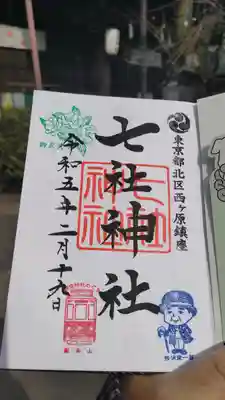 東京都北区西ヶ原鎮座
七社神社
七社
神社
令和五年二月十九日
飛鳥山